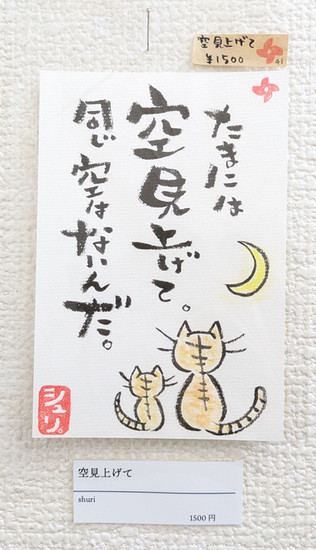 空見上げて
¥1500
41
たまには
空見上げて。
同じ空はないんだ。
シュリ。
空見上げて
shuri
1500円